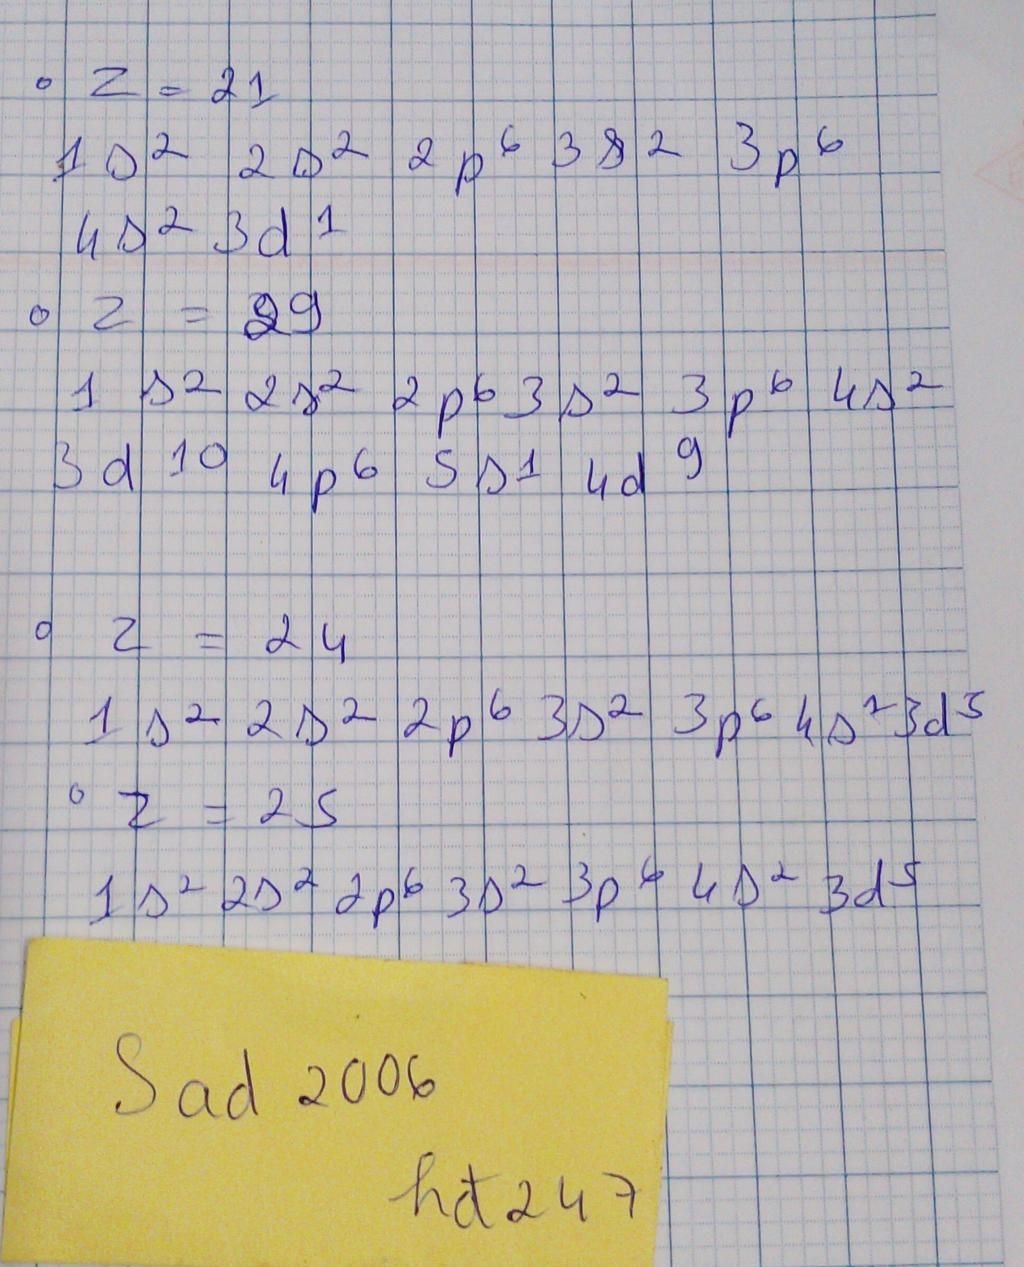 ° Z = 21
1s² 2s² 2p⁶ 3s² 3p⁶
4s² 3d¹
° Z = 29
1s² 2s² 2p⁶ 3s² 3p⁶ 4s²
3d¹⁰ 4p⁶ 5s¹ 4d⁹
° Z = 24
1s² 2s² 2p⁶ 3s² 3p⁶ 4s¹ 3d⁵
° Z = 25
1s² 2s² 2p⁶ 3s² 3p⁶ 4s² 3d⁵
Sad 2006
hđ247